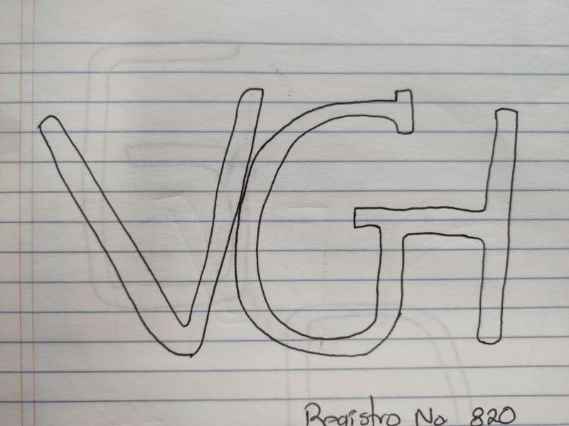 VGH
Registro No 820